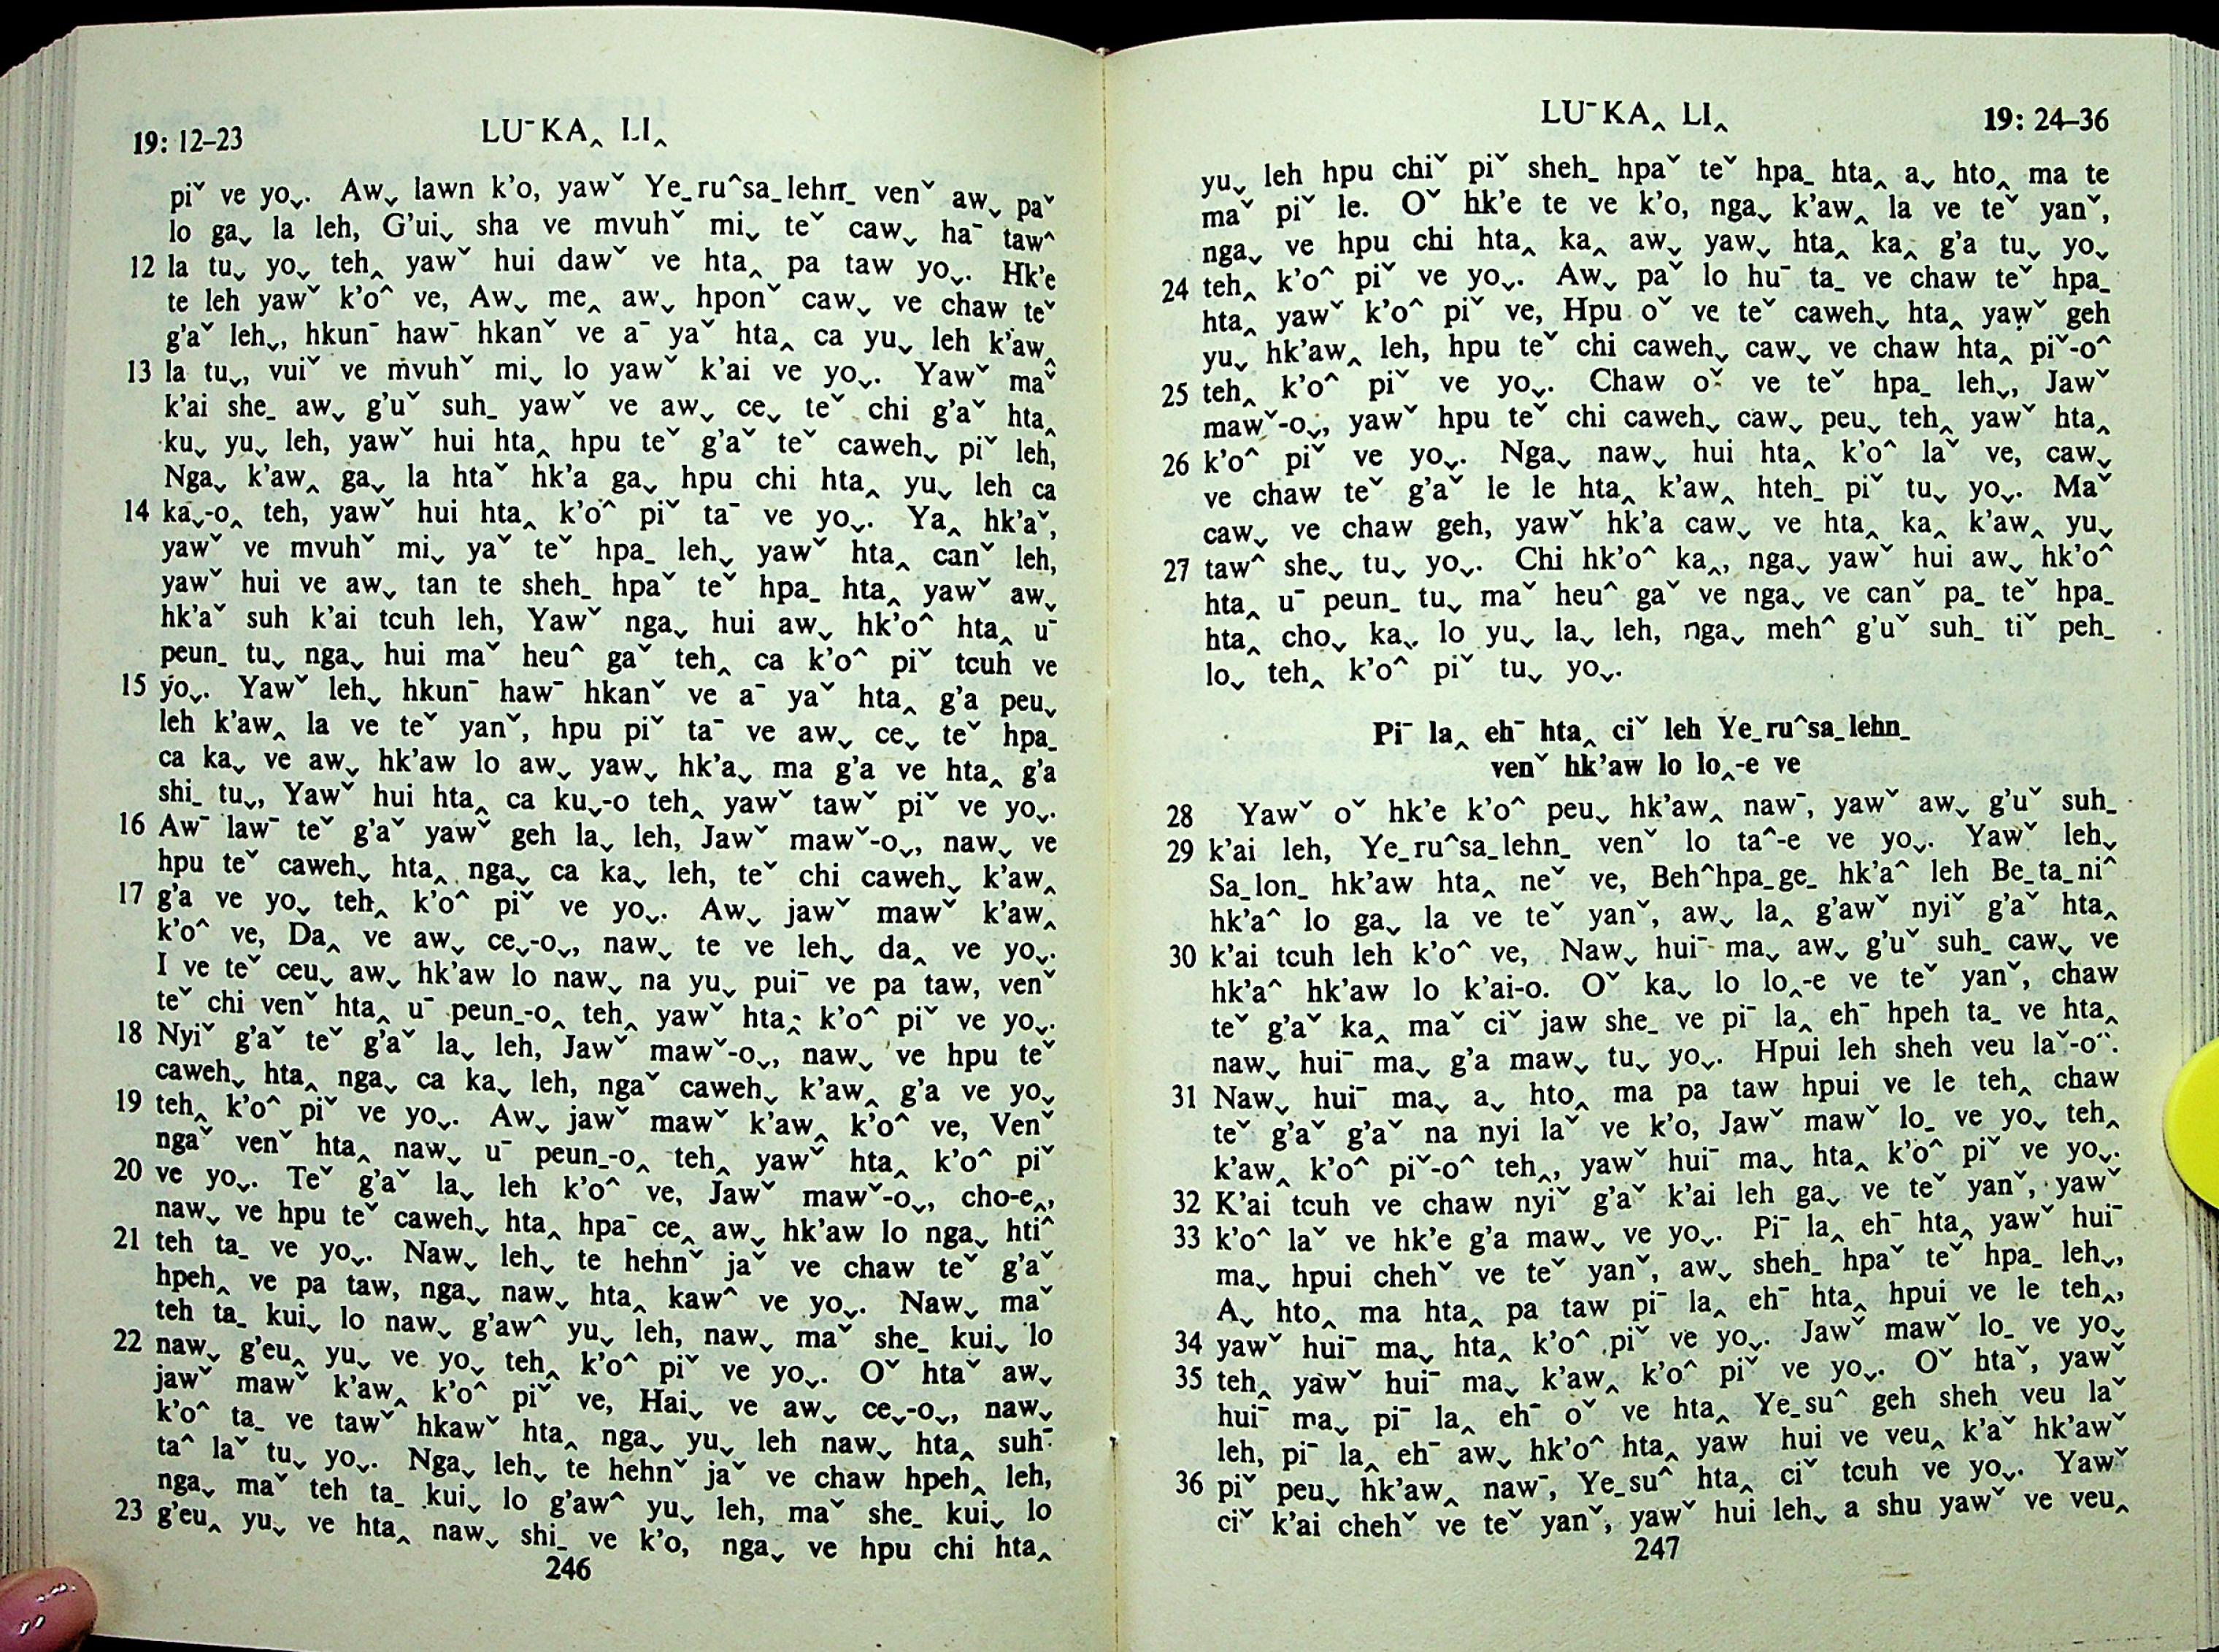 19: 12–23
LUˉ KA‸ LI‸
piˇ ve yoˬ. Awˬ lawn k'o, yawˇ Ye_ru^sa_lehn_ venˇ awˬ paˇ
lo gaˬ la leh, G'uiˬ sha ve mvuhˇ miˬ teˇ cawˬ haˉ taw^
12 la tuˬ yoˬ teh‸ yawˇ hui dawˇ ve hta‸ pa taw yoˬ. Hk'e
te leh yawˇ k'o^ ve, Awˬ me‸ awˬ hponˇ cawˬ ve chaw teˇ
g'aˇ lehˬ, hkunˉ hawˉ hkanˇ ve aˉ yaˇ hta‸ ca yuˬ leh k'aw‸
13 la tuˬ, vuiˇ ve mvuhˇ miˬ lo yawˇ k'ai ve yoˬ. Yawˇ maˇ
k'ai she_ awˬ g'uˇ suh_ yawˇ ve awˬ ceˬ teˇ chi g'aˇ hta‸
kuˬ yuˬ leh, yawˇ hui hta‸ hpu teˇ g'aˇ teˇ cawehˬ piˇ leh,
Ngaˬ k'aw‸ gaˬ la htaˇ hk'a gaˬ hpu chi hta‸ yuˬ leh ca
14 kaˬ-o‸ teh, yawˇ hui hta‸ k'o^ piˇ taˉ ve yoˬ. Ya‸ hk'aˇ,
yawˇ ve mvuhˇ miˬ yaˇ teˇ hpa_ lehˬ yawˇ hta‸ canˇ leh,
yawˇ hui ve awˬ tan te sheh_ hpaˇ teˇ hpa_ hta‸ yawˇ awˬ
hk'aˇ suh k'ai tcuh leh, Yawˇ ngaˬ hui awˬ hk'o^ hta‸ uˉ
peun_ tuˬ ngaˬ hui maˇ heu^ gaˇ teh‸ ca k'o^ piˇ tcuh ve
15 yoˬ. Yawˇ lehˬ hkunˉ hawˉ hkanˇ ve aˉ yaˇ hta‸ g'a peuˬ
leh k'aw‸ la ve teˇ yanˇ, hpu piˇ taˉ ve awˬ ceˬ teˇ hpa_
ca kaˬ ve awˬ hk'aw lo awˬ yawˬ hk'aˬ ma g'a ve hta‸ g'a
shi_ tuˬ, Yawˇ hui hta‸ ca kuˬ-o teh‸ yawˇ tawˇ piˇ ve yoˬ.
16 Awˉ lawˉ teˇ g'aˇ yawˇ geh laˬ leh, Jawˇ mawˇ-oˬ, nawˬ ve
hpu teˇ cawehˬ hta‸ ngaˬ ca kaˬ leh, teˇ chi cawehˬ k'aw‸
17 g'a ve yoˬ teh‸ k'o^ piˇ ve yoˬ. Awˬ jawˇ mawˇ k'aw‸
k'o^ ve, Da‸ ve awˬ ceˬ-oˬ, nawˬ te ve lehˬ da‸ ve yoˬ.
I ve teˇ ceuˬ awˬ hk'aw lo nawˬ na yuˬ puiˉ ve pa taw, venˇ
teˇ chi venˇ hta‸ uˉ peun_-o‸ teh‸ yawˇ hta‸ k'o^ piˇ ve yoˬ.
18 Nyiˇ g'aˇ teˇ g'aˇ laˬ leh, Jawˇ mawˇ-oˬ, nawˬ ve hpu teˇ
cawehˬ hta‸ ngaˬ ca kaˬ leh, ngaˇ cawehˬ k'aw‸ g'a ve yoˬ
19 teh‸ k'o^ piˇ ve yoˬ. Awˬ jawˇ mawˇ k'aw‸ k'o^ ve, Venˇ
ngaˇ venˇ hta‸ nawˬ uˉ peun_-o‸ teh‸ yawˇ hta‸ k'o^ piˇ
20 ve yoˬ. Teˇ g'aˇ laˬ leh k'o^ ve, Jawˇ mawˇ-oˬ, cho-e‸,
nawˬ ve hpu teˇ cawehˬ hta‸ hpaˉ ce‸ awˬ hk'aw lo ngaˬ hti^
21 teh ta_ ve yoˬ. Nawˬ lehˬ te hehnˇ jaˇ ve chaw teˇ g'aˇ
hpeh‸ ve pa taw, ngaˬ nawˬ hta‸ kaw^ ve yoˬ. Nawˬ maˇ
teh ta_ kuiˬ lo nawˬ g'aw^ yuˬ leh, nawˬ maˇ she_ kuiˬ lo
22 nawˬ g'eu‸ yuˬ ve yoˬ teh‸ k'o^ piˇ ve yoˬ. Oˇ htaˇ awˬ
jawˇ mawˇ k'aw‸ k'o^ piˇ ve, Haiˬ ve awˬ ceˬ-oˬ, nawˬ
k'o^ ta_ ve tawˇ hkawˇ hta‸ ngaˬ yuˬ leh nawˬ hta‸ suhˉ
ta^ laˇ tuˬ yoˬ. Ngaˬ lehˬ te hehnˇ jaˇ ve chaw hpeh‸ leh,
ngaˬ maˇ teh ta_ kuiˬ lo g'aw^ yuˬ leh, maˇ she_ kuiˬ lo
23 g'eu‸ yuˬ ve hta‸ nawˬ shi_ ve k'o, ngaˬ ve hpu chi hta‸
246
LUˉ KA‸ LI‸
19: 24–36
yuˬ leh hpu chiˇ piˇ sheh_ hpaˇ teˇ hpa_ hta‸ aˬ hto‸ ma te
maˇ piˇ le. Oˇ hk'e te ve k'o, ngaˬ k'aw‸ la ve teˇ yanˇ,
ngaˬ ve hpu chi hta‸ ka‸ awˬ yawˬ hta‸ ka‸ g'a tuˬ yoˬ
24 teh‸ k'o^ piˇ ve yoˬ. Awˬ paˇ lo huˉ ta_ ve chaw teˇ hpa_
hta‸ yawˇ k'o^ piˇ ve, Hpu oˇ ve teˇ cawehˬ hta‸ yawˇ geh
yuˬ hk'aw‸ leh, hpu teˇ chi cawehˬ cawˬ ve chaw hta‸ piˇ-o^
25 teh‸ k'o^ piˇ ve yoˬ. Chaw oˇ ve teˇ hpa_ lehˬ, Jawˇ
mawˇ-oˬ, yawˇ hpu teˇ chi cawehˬ cawˬ peuˬ teh‸ yawˇ hta‸
26 k'o^ piˇ ve yoˬ. Ngaˬ nawˬ hui hta‸ k'o^ laˇ ve, cawˬ
ve chaw teˇ g'aˇ le le hta‸ k'aw‸ hteh_ piˇ tuˬ yoˬ. Maˇ
cawˬ ve chaw geh, yawˇ hk'a cawˬ ve hta‸ ka‸ k'aw‸ yuˬ
27 taw^ sheˬ tuˬ yoˬ. Chi hk'o^ ka‸, ngaˬ yawˇ hui awˬ hk'o^
hta‸ uˉ peun_ tuˬ maˇ heu^ gaˇ ve ngaˬ ve canˇ pa_ teˇ hpa_
hta‸ choˬ kaˬ lo yuˬ laˬ leh, ngaˬ meh^ g'uˇ suh_ tiˇ peh_
loˬ teh‸ k'o^ piˇ tuˬ yoˬ.
Piˉ la‸ ehˉ hta‸ ciˇ leh Ye_ru^sa_lehn_
venˇ hk'aw lo lo‸-e ve
28 Yawˇ oˇ hk'e k'o^ peuˬ hk'aw‸ nawˉ, yawˇ awˬ g'uˇ suh_
29 k'ai leh, Ye_ru^sa_lehn_ venˇ lo ta^-e ve yoˬ. Yawˇ lehˬ
Sa_lon_ hk'aw hta‸ neˇ ve, Beh^hpa_ge_ hk'a^ leh Be_ta_ni^
hk'a^ lo gaˬ la ve teˇ yanˇ, awˬ la‸ g'awˇ nyiˇ g'aˇ hta‸
30 k'ai tcuh leh k'o^ ve, Nawˬ huiˉ maˬ awˬ g'uˇ suh_ cawˬ ve
hk'a^ hk'aw lo k'ai-o. Oˇ kaˬ lo lo‸-e ve teˇ yanˇ, chaw
teˇ g'aˇ ka‸ maˇ ciˇ jaw she_ ve piˉ la‸ ehˉ hpeh ta_ ve hta‸
nawˬ huiˉ maˬ g'a mawˬ tuˬ yoˬ. Hpui leh sheh veu laˇ-oˇ.
31 Nawˬ huiˉ maˬ aˬ hto‸ ma pa taw hpui ve le teh‸ chaw
teˇ g'aˇ g'aˇ na nyi laˇ ve k'o, Jawˇ mawˇ lo_ ve yoˬ teh‸
k'aw‸ k'o^ piˇ-o^ teh‸, yawˇ huiˉ maˬ hta‸ k'o^ piˇ ve yoˬ.
32 K'ai tcuh ve chaw nyiˇ g'aˇ k'ai leh gaˬ ve teˇ yanˇ, yawˇ
33 k'o^ laˇ ve hk'e g'a mawˬ ve yoˬ. Piˉ la‸ ehˉ hta‸ yawˇ huiˉ
maˬ hpui chehˇ ve teˇ yanˇ, awˬ sheh_ hpaˇ teˇ hpa_ lehˬ,
Aˬ hto‸ ma hta‸ pa taw piˉ la‸ ehˉ hta‸ hpui ve le teh‸,
34 yawˇ huiˉ maˬ hta‸ k'o^ piˇ ve yoˬ. Jawˇ mawˇ lo_ ve yoˬ
35 teh‸ yawˇ huiˉ maˬ k'aw‸ k'o^ piˇ ve yoˬ. Oˇ htaˇ, yawˇ
huiˉ maˬ piˉ la‸ ehˉ oˇ ve hta‸ Ye_su^ geh sheh veu laˇ
leh, piˉ la‸ ehˉ awˬ hk'o^ hta‸ yaw hui ve veu‸ k'aˇ hk'awˇ
36 piˇ peuˬ hk'aw‸ nawˉ, Ye_su^ hta‸ ciˇ tcuh ve yoˬ. Yawˇ
ciˇ k'ai chehˇ ve teˇ yanˇ, yawˇ hui lehˬ a shu yawˇ ve veu‸
247